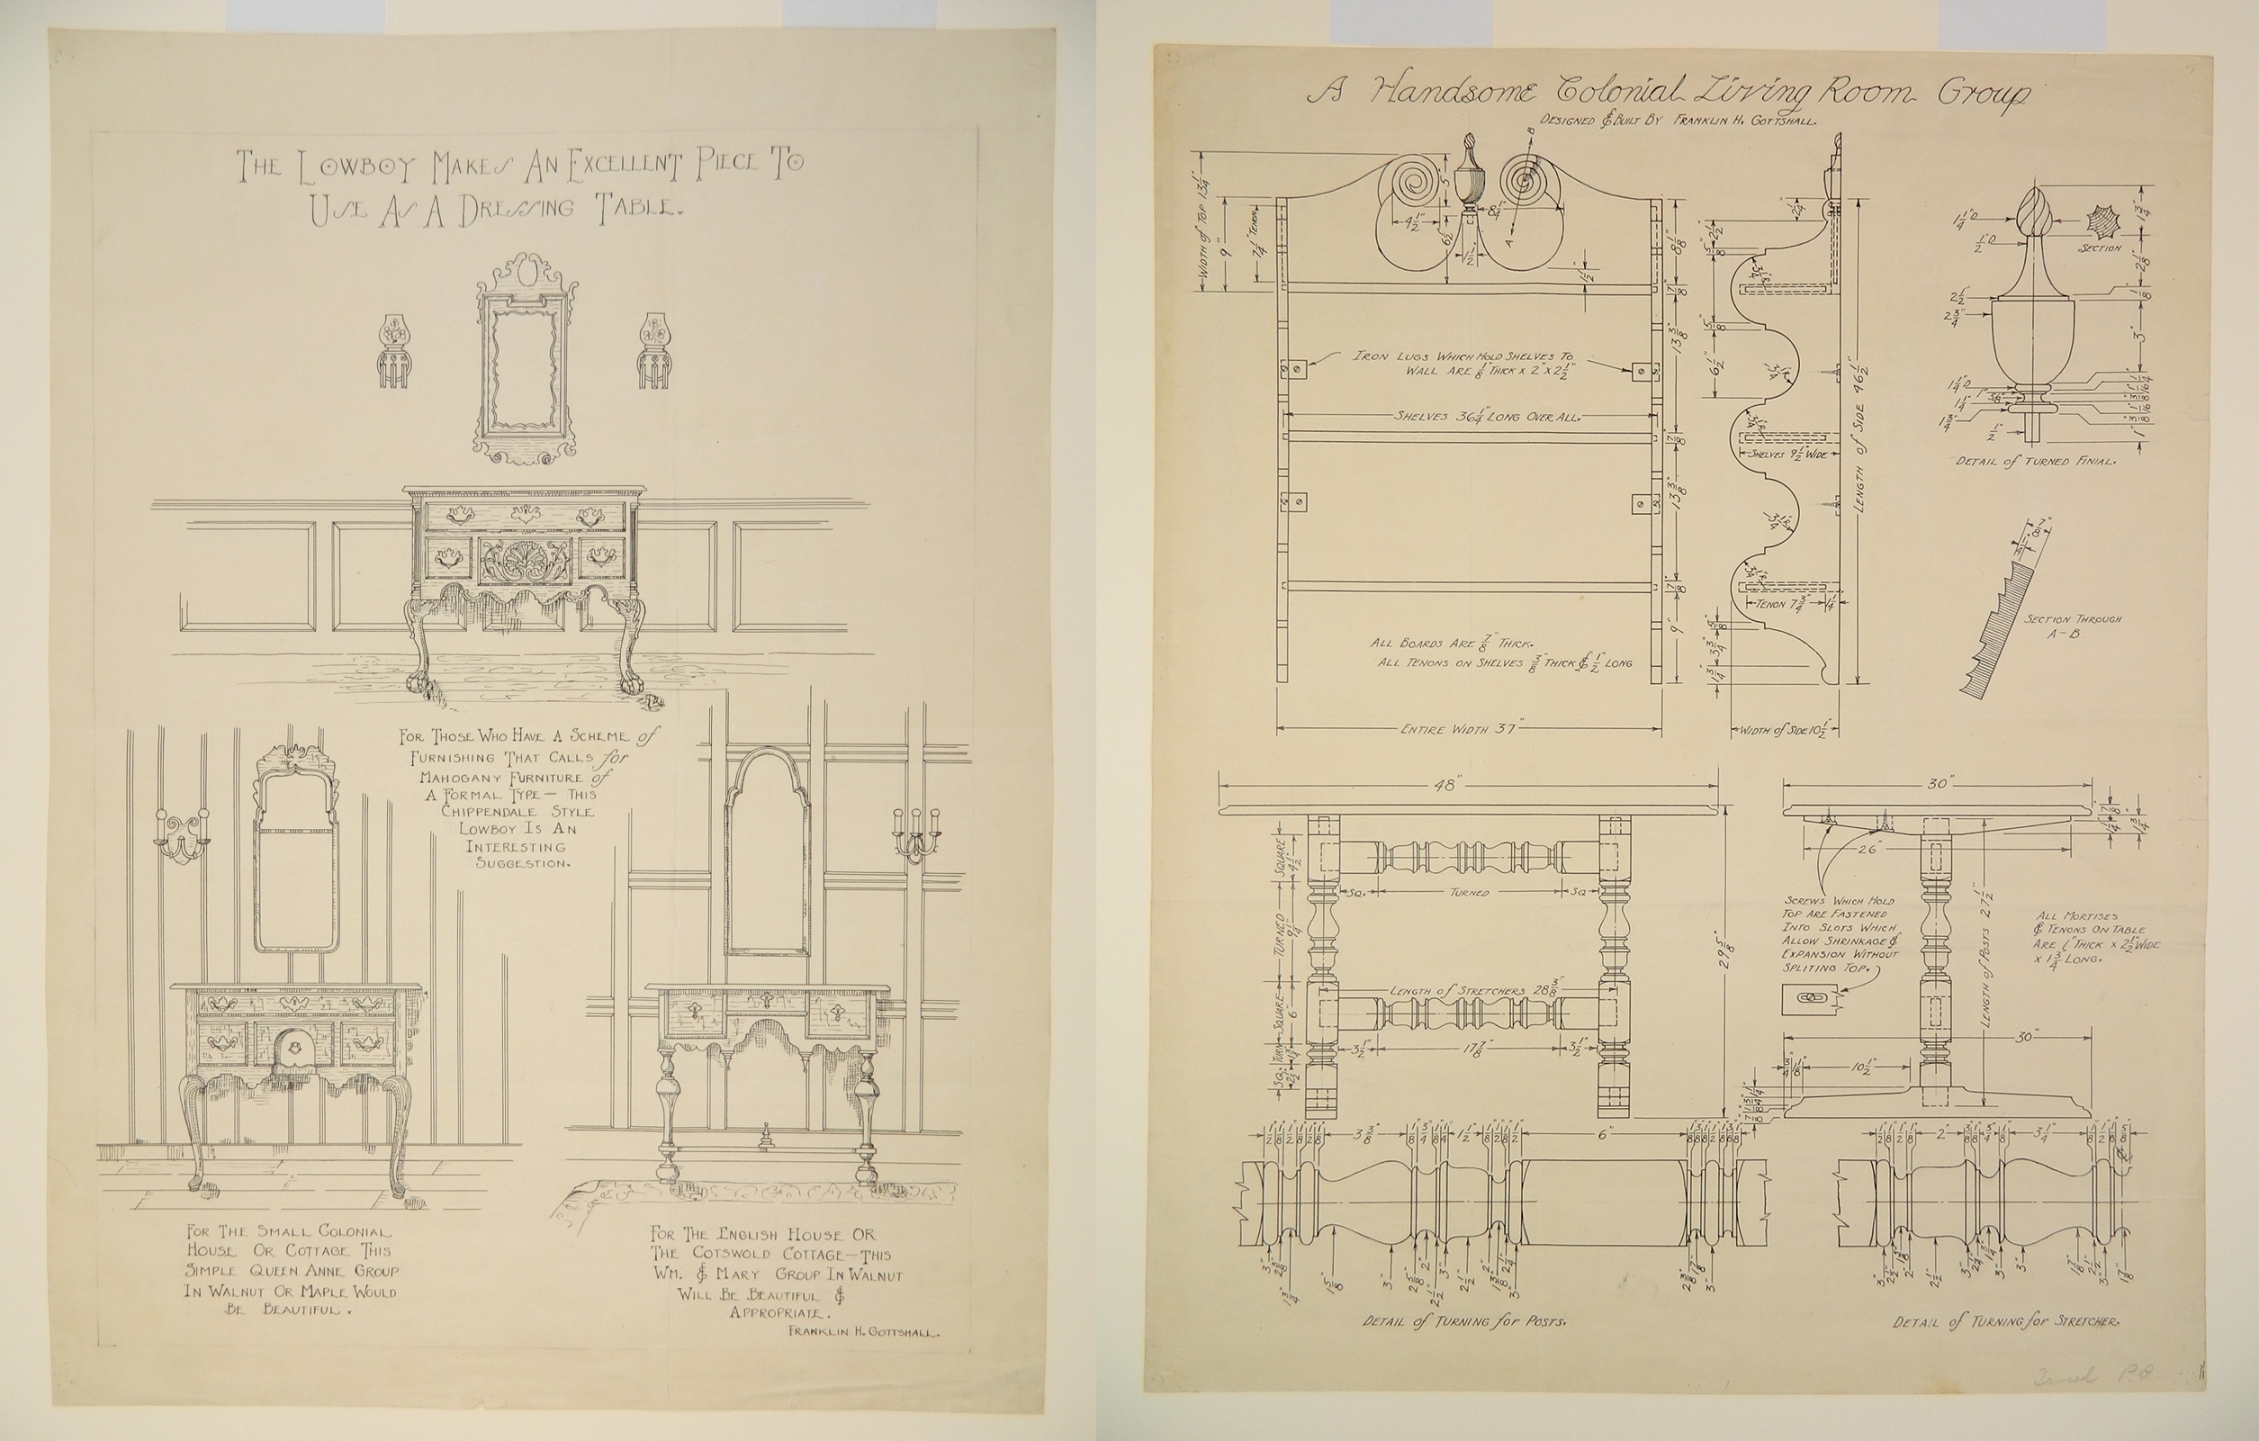 THE LOWBOY MAKES AN EXCELLENT PIECE TO
USE AS A DRESSING TABLE.
FOR THOSE WHO HAVE A SCHEME of
FURNISHING THAT CALLS for
MAHOGANY FURNITURE of
A FORMAL TYPE — THIS
CHIPPENDALE STYLE
LOWBOY IS AN
INTERESTING
SUGGESTION.
FOR THE SMALL COLONIAL
HOUSE OR COTTAGE THIS
SIMPLE QUEEN ANNE GROUP
IN WALNUT OR MAPLE WOULD
BE BEAUTIFUL.
FOR THE ENGLISH HOUSE OR
THE COTSWOLD COTTAGE—THIS
WM. & MARY GROUP IN WALNUT
WILL BE BEAUTIFUL &
APPROPRIATE.
FRANKLIN H. GOTTSHALL.
A Handsome Colonial Living Room Group
DESIGNED & BUILT BY FRANKLIN H. GOTTSHALL.
WIDTH of TOP 13 1/4"
9"
7 1/4" TENON
4 1/2"
5"
8 1/4"
6 1/2"
1 1/2"
A
B
1 1/2"
8 1/8"
7/8"
13 3/8"
IRON LUGS WHICH HOLD SHELVES TO
WALL ARE 1/8" THICK x 2" x 2 1/2"
SHELVES 36 1/4" LONG OVER ALL.
7/8"
13 3/8"
7/8"
9"
ALL BOARDS ARE 7/8" THICK.
ALL TENONS ON SHELVES 3/8" THICK & 1/2" LONG
ENTIRE WIDTH 37"
2 1/2"
5/8"
5/8"
6 1/2"
SHELVES 9 1/2" WIDE
TENON 7 3/4"
1 1/4"
5/8"
3 3/4"
1 3/4"
LENGTH of SIDE 46 1/2"
WIDTH of SIDE 10 1/2"
1 1/4" D
1/2" D
2 1/2"
2 3/4"
1 1/4" D
1"
1 1/4"
1 3/4"
1/2"
1 3/4"
2 1/8"
1/8"
3"
1"
SECTION
DETAIL of TURNED FINIAL.
7/8"
1/4"
SECTION THROUGH
A-B
48"
SQUARE 4 1/2"
SQ.
TURNED
SQ
TURNED 9 1/4"
LENGTH of STRETCHERS 28 3/8"
SQUARE 6"
3 1/2"
17 7/8"
3 1/2"
TURN 1 1/4"
SQ. 2 1/2"
29 5/8"
30"
7/8"
1 1/4"
1 3/4"
26"
SCREWS WHICH HOLD
TOP ARE FASTENED
INTO SLOTS WHICH
ALLOW SHRINKAGE &
EXPANSION WITHOUT
SPLITING TOP.
LENGTH of POSTS 27 1/2"
ALL MORTISES
& TENONS ON TABLE
ARE 1" THICK x 2 1/2" WIDE
x 1 3/4" LONG.
30"
3/4"
1 1/8"
10 1/2"
3 3/8"
1 1/2"
6"
3"
1 3/4"
1 5/8"
3"
2 5/8"
2"
2 1/2"
3"
2 1/2"
2"
1 3/8"
2 1/4"
3"
2 3/8"
3"
DETAIL of TURNING for POSTS.
2"
3 1/4"
3"
2 1/2"
1 1/8"
2"
2 1/2"
3"
2 1/4"
1 1/4"
3"
3"
1 7/8"
2 1/2"
3"
1 7/8"
DETAIL of TURNING for STRETCHER.